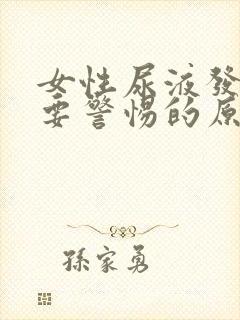 女性尿液發
要警惕的原
孫家勇